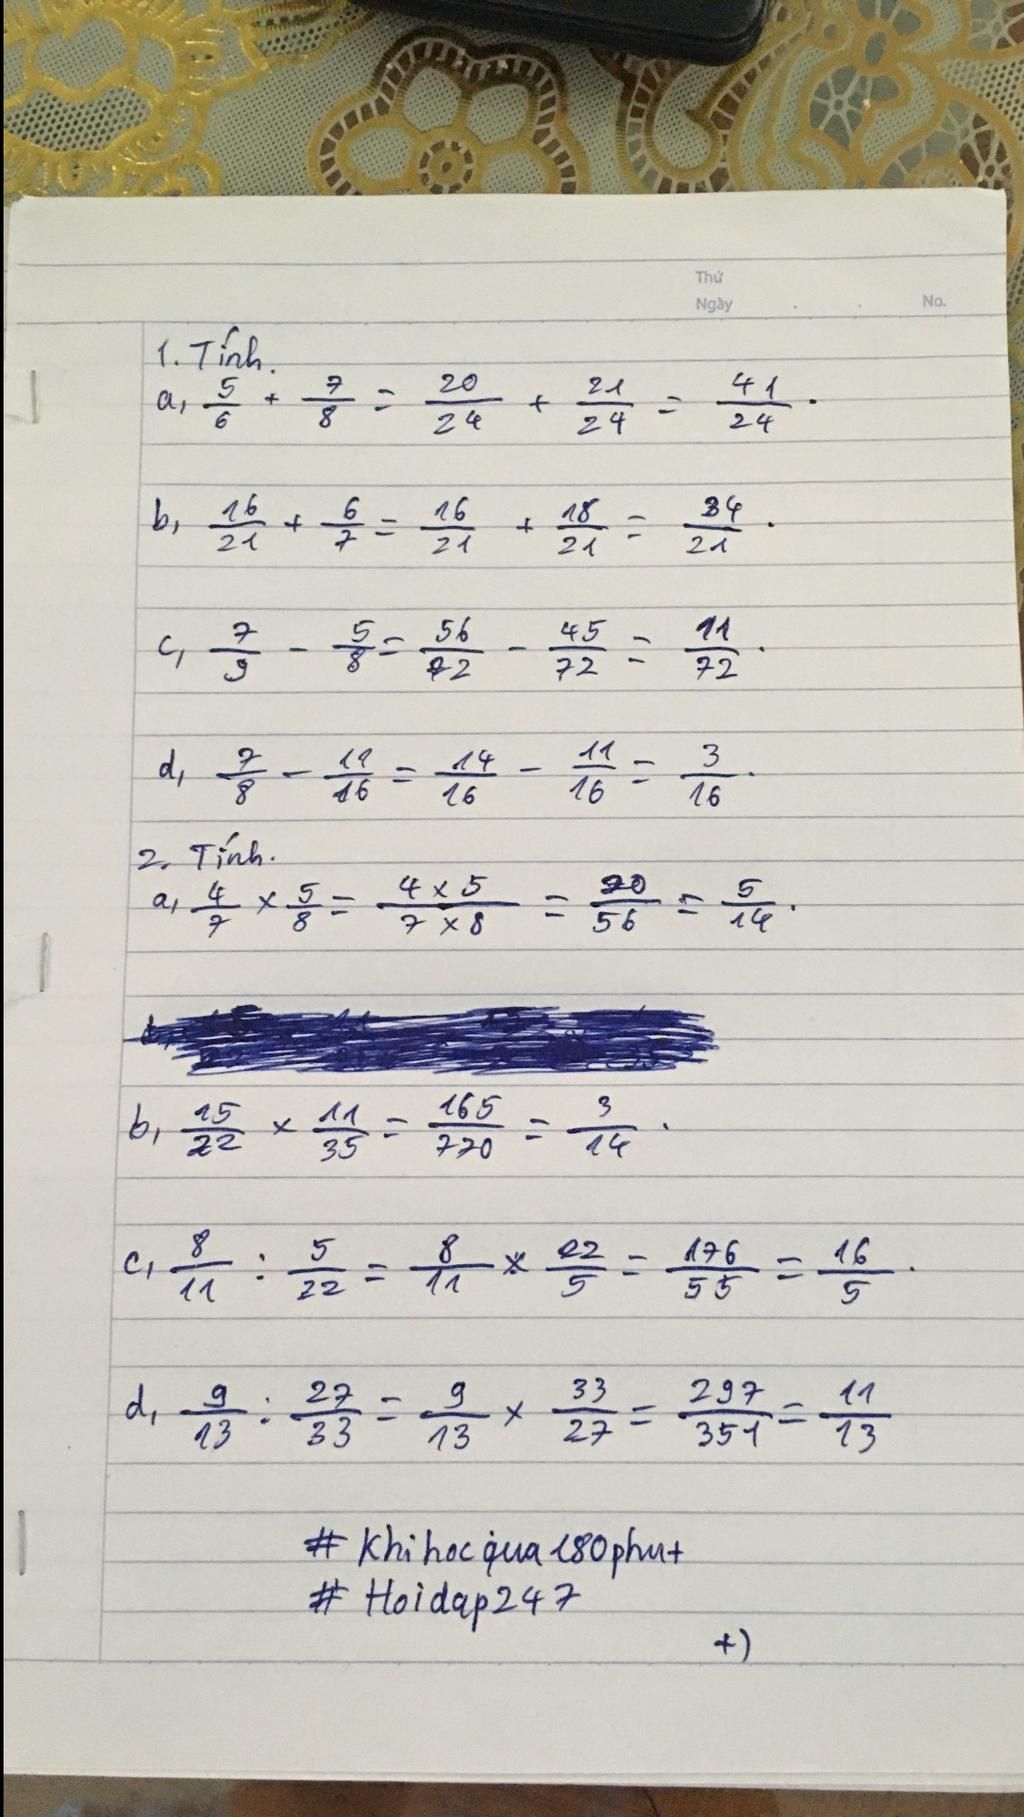 Thứ
Ngày . . No.
1. Tính.
a, 5/6 + 7/8 = 20/24 + 21/24 = 41/24.
b, 16/21 + 6/7 = 16/21 + 18/21 = 34/21.
c, 7/9 - 5/8 = 56/72 - 45/72 = 11/72.
d, 7/8 - 11/16 = 14/16 - 11/16 = 3/16.
2. Tính.
a, 4/7 × 5/8 = 4 × 5/7 × 8 = 20/56 = 5/14.
b, 15/22 × 11/35 = 165/770 = 3/14.
c, 8/11 : 5/22 = 8/11 × 22/5 = 176/55 = 16/5.
d, 9/13 : 27/33 = 9/13 × 33/27 = 297/351 = 11/13
# Khi hoc qua 180 phut
# Hoidap247
+)